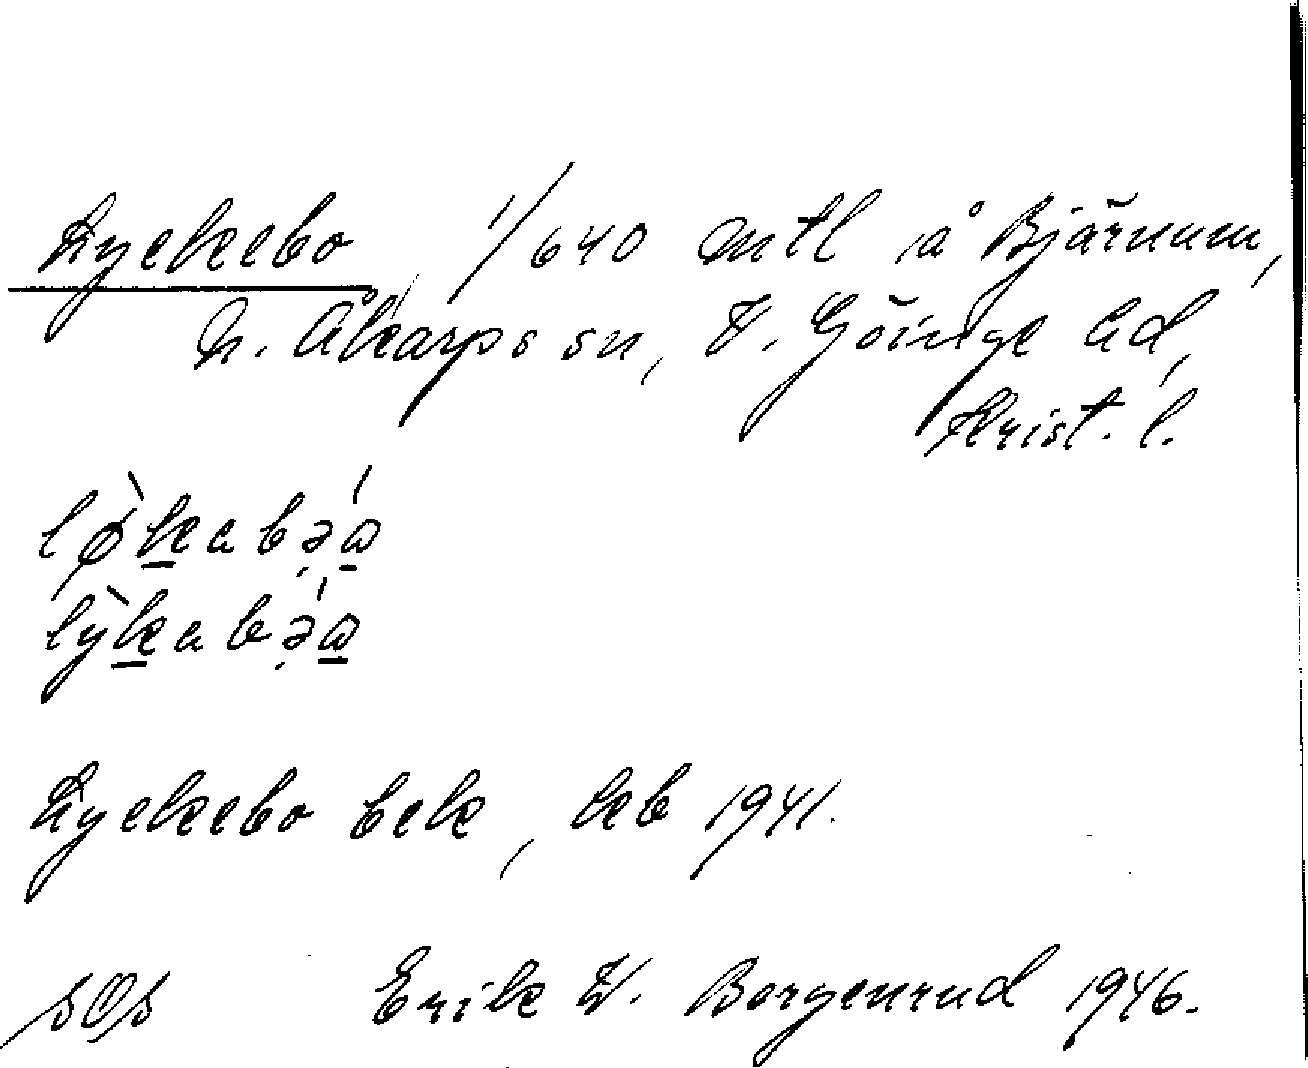 Lyckebo, 1/640 mtl å Bjärnum,
N. Åkarps sn, V. Göinge hd,
Krist. l.
lø̀kabə́ɷ
lỳkabə́ɷ
Lyckebo bek, kb 1941.
SOS Erik W. Borgenrud 1946.